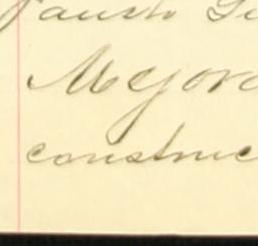 Fausto
Mejora
construc